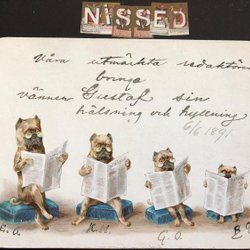 NISSED
Våra utmärkta redaktörer
bringa
vännen Gustaf sin
hälsning och hyllning
6/6 1891
B.O. K.H. G.O. B